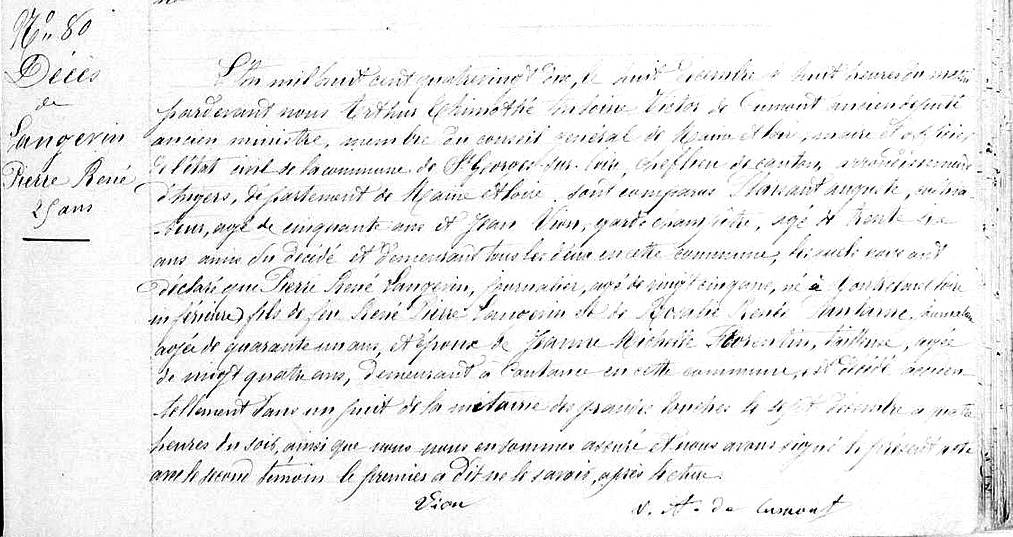 No 80
Décès
de
Langevin
Pierre René
25 ans
L'an mil huit cent quatre vingt dix, le huit décembre à huit heures du matin
pardevant nous Arthur Thimothé Antoine Victor de Cumont ancien député
ancien ministre, membre du conseil général de Maine et Loire, maire et officier
de l'état civil de la commune de St Georges-sur-Loire, chef lieu de canton, arrondissement
d'Angers, département de Maine et Loire, sont comparus auguste,
agé de cinquante ans et Jean Vion, garde champêtre, agé de trente six
ans amis du décédé et demeurant tous les deux en cette commune, lesquels nous ont
déclaré que Pierre René Langevin, journalier, agé de vingt cinq ans, né à Loire
inférieure) fils de feu René Pierre Langevin et de Rosalie Renée
agée de quarante un ans, et époux de Jeanne Michelle Florentin, agée
de vingt quatre ans, demeurant à en cette commune, est décédé acciden-
tellement dans un puit de la métairie des grandes touches le sept décembre à quatre
heures du soir, ainsi que nous nous en sommes assuré et nous avons signé le présent acte
avec le second témoin le premier a dit ne le savoir, après lecture
Vion
V. A. de Cumont